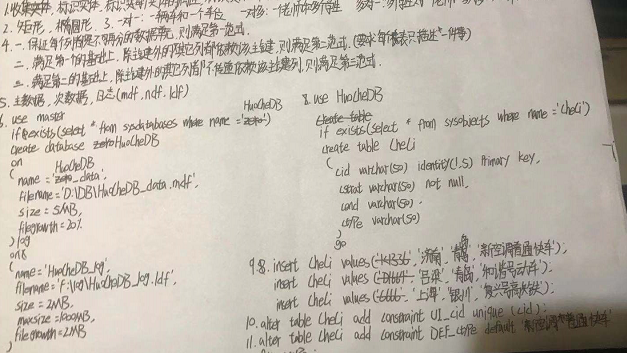 1.收集实体, 标识实体, 标识实体
2. 矩形, 椭圆形. 3. 一对一: 一辆车和一个车位
4. 一. 保证每个列都是不可再分的数据单元, 则满足第一范式.
二. 满足第一个的基础上, 除主键外的其它列都依赖该主键, 则满足第二范式. (要求每个表只描述一件事)
三. 满足第二的基础上, 除主键外的其它列都不传递依赖该主键列, 则满足第三范式.
5. 主数据, 次数据, 日志(mdf, ndf, ldf)
6. use master
HuoCheDB
if exists(select * from sysdatabases where name = 'zero')
create database zero HuoCheDB
on
HuoCheDB
( name = 'zero_data',
filename = 'D:\DB\HuoCheDB_data.mdf',
size = 5MB,
filegrowth = 20%
) log
on
( name = 'HuoCheDB_log',
filename = 'F:\log\HuoCheDB_log.ldf',
size = 2MB,
maxsize = 1000MB,
filegrowth = 2MB
)
8. use HuoCheDB
create table
if exists(select * from sysobjects where name = 'CheLi')
create table CheLi
( cid varchar(50) identity(1,5) Primary key,
cstrat varchar(50) not null,
cend varchar(50),
ctype varchar(50)
)
go
9.8. insert CheLi values('K1336', '济南', '青岛', '新空调普通快车');
insert CheLi values( '吕梁', '青岛', '和谐号动车');
insert CheLi values('G666', '上海', '银川', '复兴号高铁');
10. alter table CheLi add constraint UI_cid unique (cid);
11. alter table CheLi add constraint DEF_ctype default '新空调普通快车'